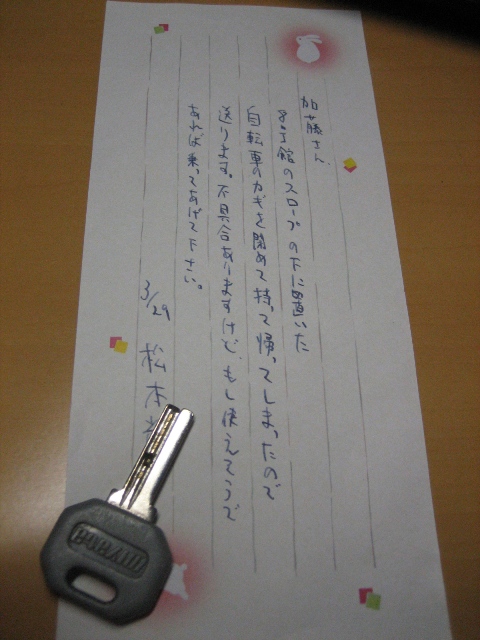 加藤さん、
8・1館のスロープの下に置いた
自転車のカギを閉めて持って帰ってしまったので
送ります。不具合ありますけど、もし使えそうで
あれば乗ってあげて下さい。
3/29 松本
miyata